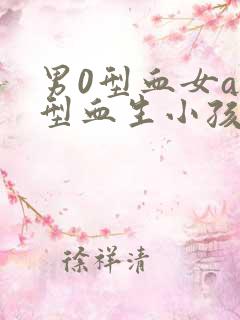 男0型血女a
型血生小孩
徐祥清